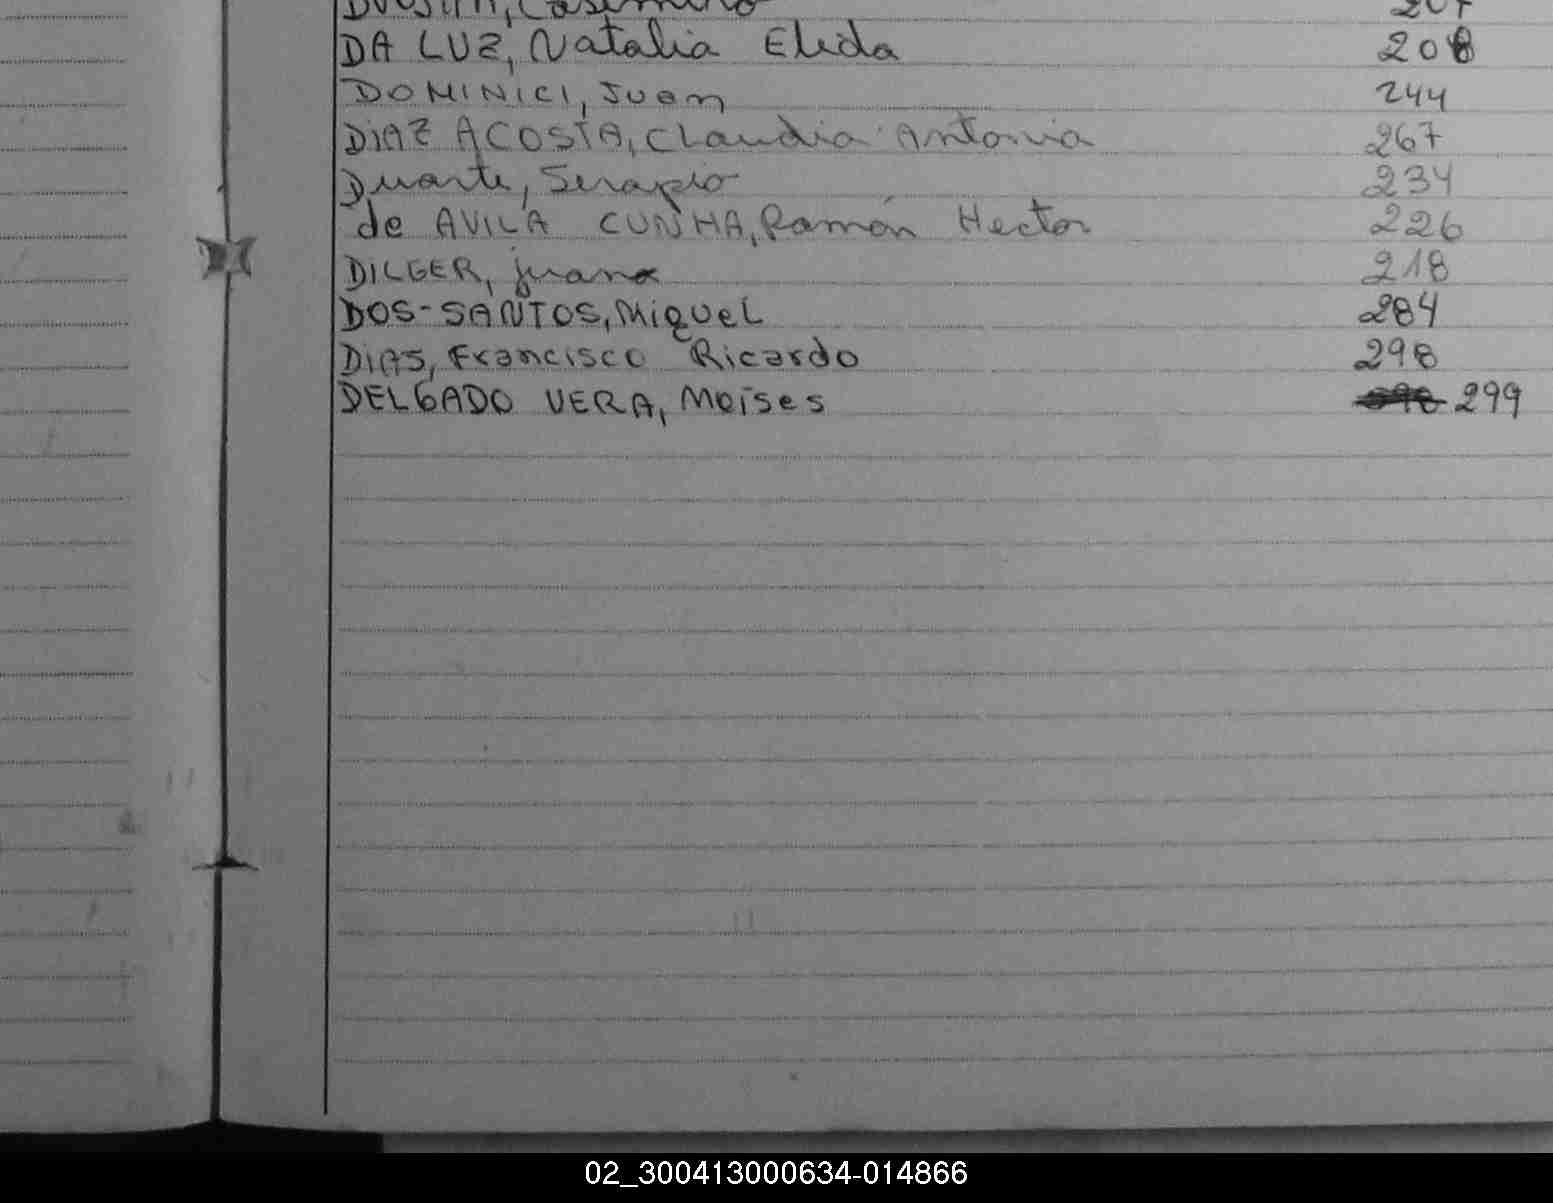 DA LUZ, Natalia Elida 208
DOMINICI, Juan 244
DIAZ ACOSTA, Claudia Antonia 267
Duarte, Serapio 234
de AVILA CUNHA, Ramón Hector 226
DILGER, juana 218
DOS-SANTOS, Miguel 284
DIAS, Francisco Ricardo 298
DELGADO VERA, Moises 299
02_300413000634-014866